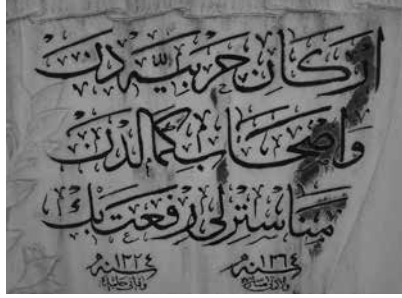 اركان حربيه دن
واصحاب كمالدن
مناسترلى رفعت بك
سنه ١٢٦٤ سنه ١٣٢٤